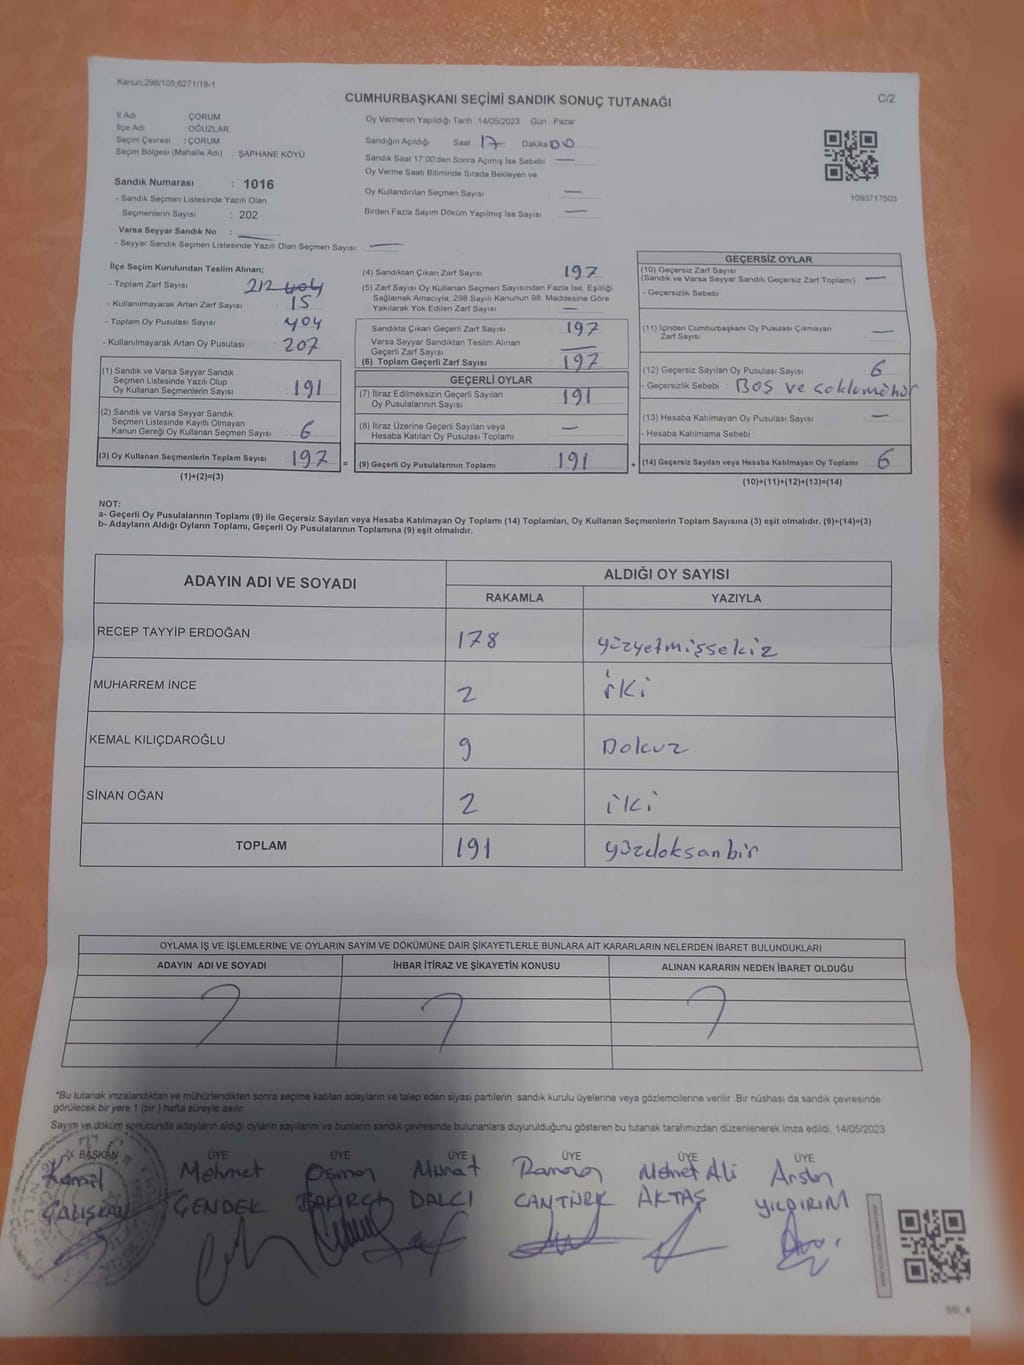 Kanun:298/105;6271/18-1
CUMHURBAŞKANI SEÇİMİ SANDIK SONUÇ TUTANAĞI
C/2
İl Adı : ÇORUM
İlçe Adı : OĞUZLAR
Seçim Çevresi : ÇORUM
Seçim Bölgesi (Mahalle Adı) : ŞAPHANE KÖYÜ
Sandık Numarası : 1016
- Sandık Seçmen Listesinde Yazılı Olan
Seçmenlerin Sayısı : 202
Varsa Seyyar Sandık No :
- Seyyar Sandık Seçmen Listesinde Yazılı Olan Seçmen Sayısı: —
Oy Vermenin Yapıldığı Tarih :14/05/2023 Gün :Pazar
Sandığın Açıldığı Saat 17 Dakika 00
Sandık Saat 17:00'den Sonra Açımış İse Sebebi : —
Oy Verme Saati Bitiminde Sırada Bekleyen ve
Oy Kullandırılan Seçmen Sayısı —
Birden Fazla Sayım Döküm Yapılmış İse Sayısı : —
1093717503
İlçe Seçim Kurulundan Teslim Alınan;
- Toplam Zarf Sayısı : 212 404
- Kullanılmayarak Artan Zarf Sayısı : 15
- Toplam Oy Pusulası Sayısı : 404
- Kullanılmayarak Artan Oy Pusulası : 207
(1) Sandık ve Varsa Seyyar Sandık
Seçmen Listesinde Yazılı Olup
Oy Kullanan Seçmenlerin Sayısı : 191
(2) Sandık ve Varsa Seyyar Sandık
Seçmen Listesinde Kayıtlı Olmayan
Kanun Gereği Oy Kullanan Seçmen Sayısı : 6
(3) Oy Kullanan Seçmenlerin Toplam Sayısı : 197
(1)+(2)=(3)
(4) Sandıktan Çıkan Zarf Sayısı : 197
(5) Zarf Sayısı Oy Kullanan Seçmen Sayısından Fazla İse, Eşitliği
Sağlamak Amacıyla, 298 Sayılı Kanunun 98. Maddesine Göre
Yakılarak Yok Edilen Zarf Sayısı : —
Sandıkta Çıkan Geçerli Zarf Sayısı : 197
Varsa Seyyar Sandıktan Teslim Alınan
Geçerli Zarf Sayısı : —
(6) Toplam Geçerli Zarf Sayısı : 197
GEÇERLİ OYLAR
(7) İtiraz Edilmeksizin Geçerli Sayılan
Oy Pusulalarının Sayısı : 191
(8) İtiraz Üzerine Geçerli Sayılan veya
Hesaba Katılan Oy Pusulası Toplamı : —
= (9) Geçerli Oy Pusulalarının Toplamı : 191
GEÇERSİZ OYLAR
(10) Geçersiz Zarf Sayısı
(Sandık ve Varsa Seyyar Sandık Geçersiz Zarf Toplamı) : —
- Geçersizlik Sebebi :
(11) İçinden Cumhurbaşkanı Oy Pusulası Çıkmayan
Zarf Sayısı : —
(12) Geçersiz Sayılan Oy Pusulası Sayısı : 6
- Geçersizlik Sebebi : Boş ve çoklumühür
(13) Hesaba Katılmayan Oy Pusulası Sayısı : —
- Hesaba Katılmama Sebebi :
+ (14) Geçersiz Sayılan veya Hesaba Katılmayan Oy Toplamı : 6
(10)+(11)+(12)+(13)=(14)
NOT:
a- Geçerli Oy Pusulalarının Toplamı (9) ile Geçersiz Sayılan veya Hesaba Katılmayan Oy Toplamı (14) Toplamları, Oy Kullanan Seçmenlerin Toplam Sayısına (3) eşit olmalıdır. (9)+(14)=(3)
b- Adayların Aldığı Oyların Toplamı, Geçerli Oy Pusulalarının Toplamına (9) eşit olmalıdır.
ADAYIN ADI VE SOYADI ALDIĞI OY SAYISI
RAKAMLA YAZIYLA
RECEP TAYYİP ERDOĞAN 178 yüzyetmişsekiz
MUHARREM İNCE 2 iki
KEMAL KILIÇDAROĞLU 9 Dokuz
SİNAN OĞAN 2 iki
TOPLAM 191 yüzdoksanbir
OYLAMA İŞ VE İŞLEMLERİNE VE OYLARIN SAYIM VE DÖKÜMÜNE DAİR ŞİKAYETLERLE BUNLARA AİT KARARLARIN NELERDEN İBARET BULUNDUKLARI
ADAYIN ADI VE SOYADI İHBAR İTİRAZ VE ŞİKAYETİN KONUSU ALINAN KARARIN NEDEN İBARET OLDUĞU
*Bu tutanak imzalandıktan ve mühürlendikten sonra seçime katılan adayların ve talep eden siyasi partilerin sandık kurulu üyelerine veya gözlemcilerine verilir .Bir nüshası da sandık çevresinde
görülecek bir yere 1 (bir ) hafta süreyle asılır.
Sayım ve döküm sonucunda adayların aldığı oyların sayılarını ve bunların sandık çevresinde bulunanlara duyurulduğunu gösteren bu tutanak tarafımızdan düzenlenerek imza edildi. 14/05/2023
BAŞKAN ÜYE ÜYE ÜYE ÜYE ÜYE ÜYE
Mehmet Osman Murat Ramazan Mehmet Ali Arslan
ÇALIŞKAN ÇENDEK BAKIRCI DALCI CANTÜRK AKTAŞ YILDIRIM